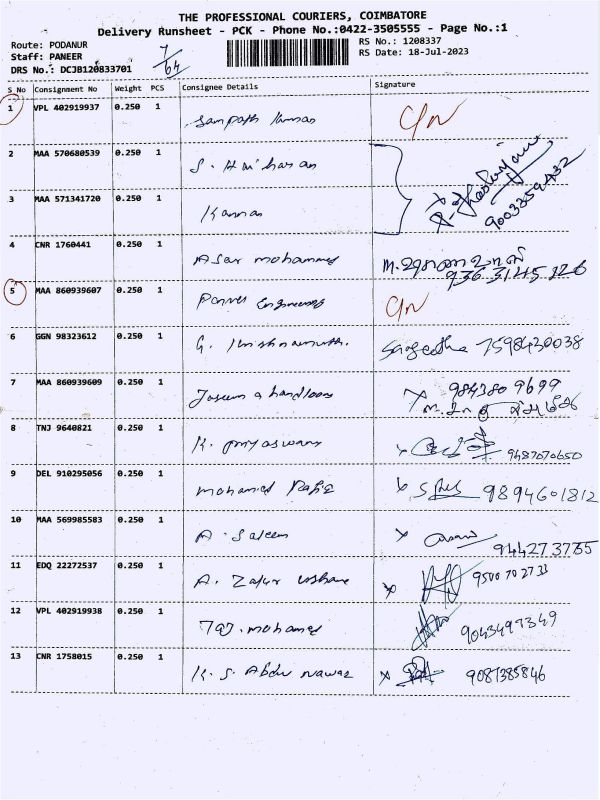 THE PROFESSIONAL COURIERS, COIMBATORE
Delivery Runsheet - PCK - Phone No.:0422-3505555 - Page No.:1
Route: PODANUR
RS No.: 1208337
Staff: PANEER
RS Date: 18-Jul-2023
DRS No.: DCJB120833701
7/64
S No Consignment No Weight PCS Consignee Details Signature
1 VPL 402919937 0.250 1 Sampath Kumar
2 MAA 570680539 0.250 1 S. Hariharan
3 MAA 571341720 0.250 1 Kannan
9003359432
4 CNR 1760441 0.250 1 Asar mohammed
5 MAA 860939607 0.250 1 Engineering
6 GGN 98323612 0.250 1 G. Sangeetha 7598430038
7 MAA 860939609 0.250 1 handlooms 9843809699
8 TNJ 9640821 0.250 1 K. 9487070650
9 DEL 910295056 0.250 1 mohamed Rafiq 9894601812
10 MAA 569985583 0.250 1 A. Saleem
11 EDQ 22272537 0.250 1 A. Zafar 9500702733
12 VPL 402919938 0.250 1 Taj. mohamed 9043497349
13 CNR 1758015 0.250 1 K. S. Abdul nawaz 9087385846